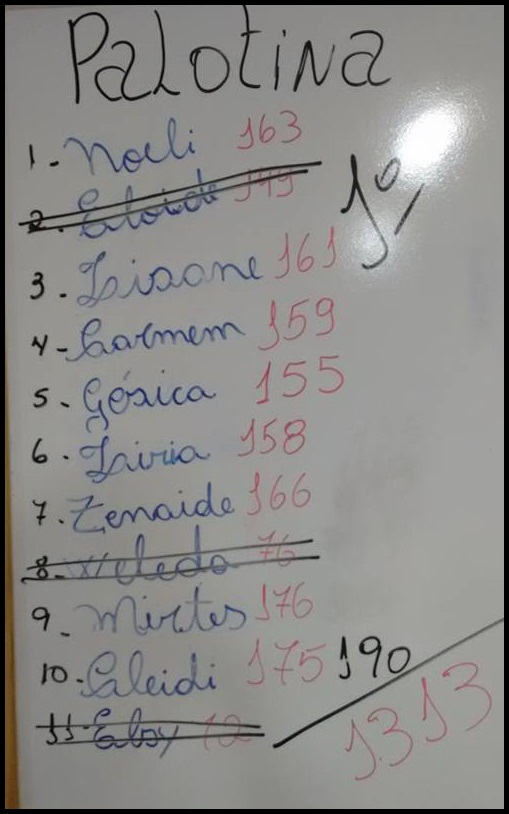 Palotina
1- Noeli 163
2. Eloide 149
1º
3. Lisane 161
4- Carmem 159
5. Géssica 155
6. Livia 158
7. Zenaide 166
8- 76
9- Mirtes 176
10- Caleidi 175 190
11- Eloy
1313